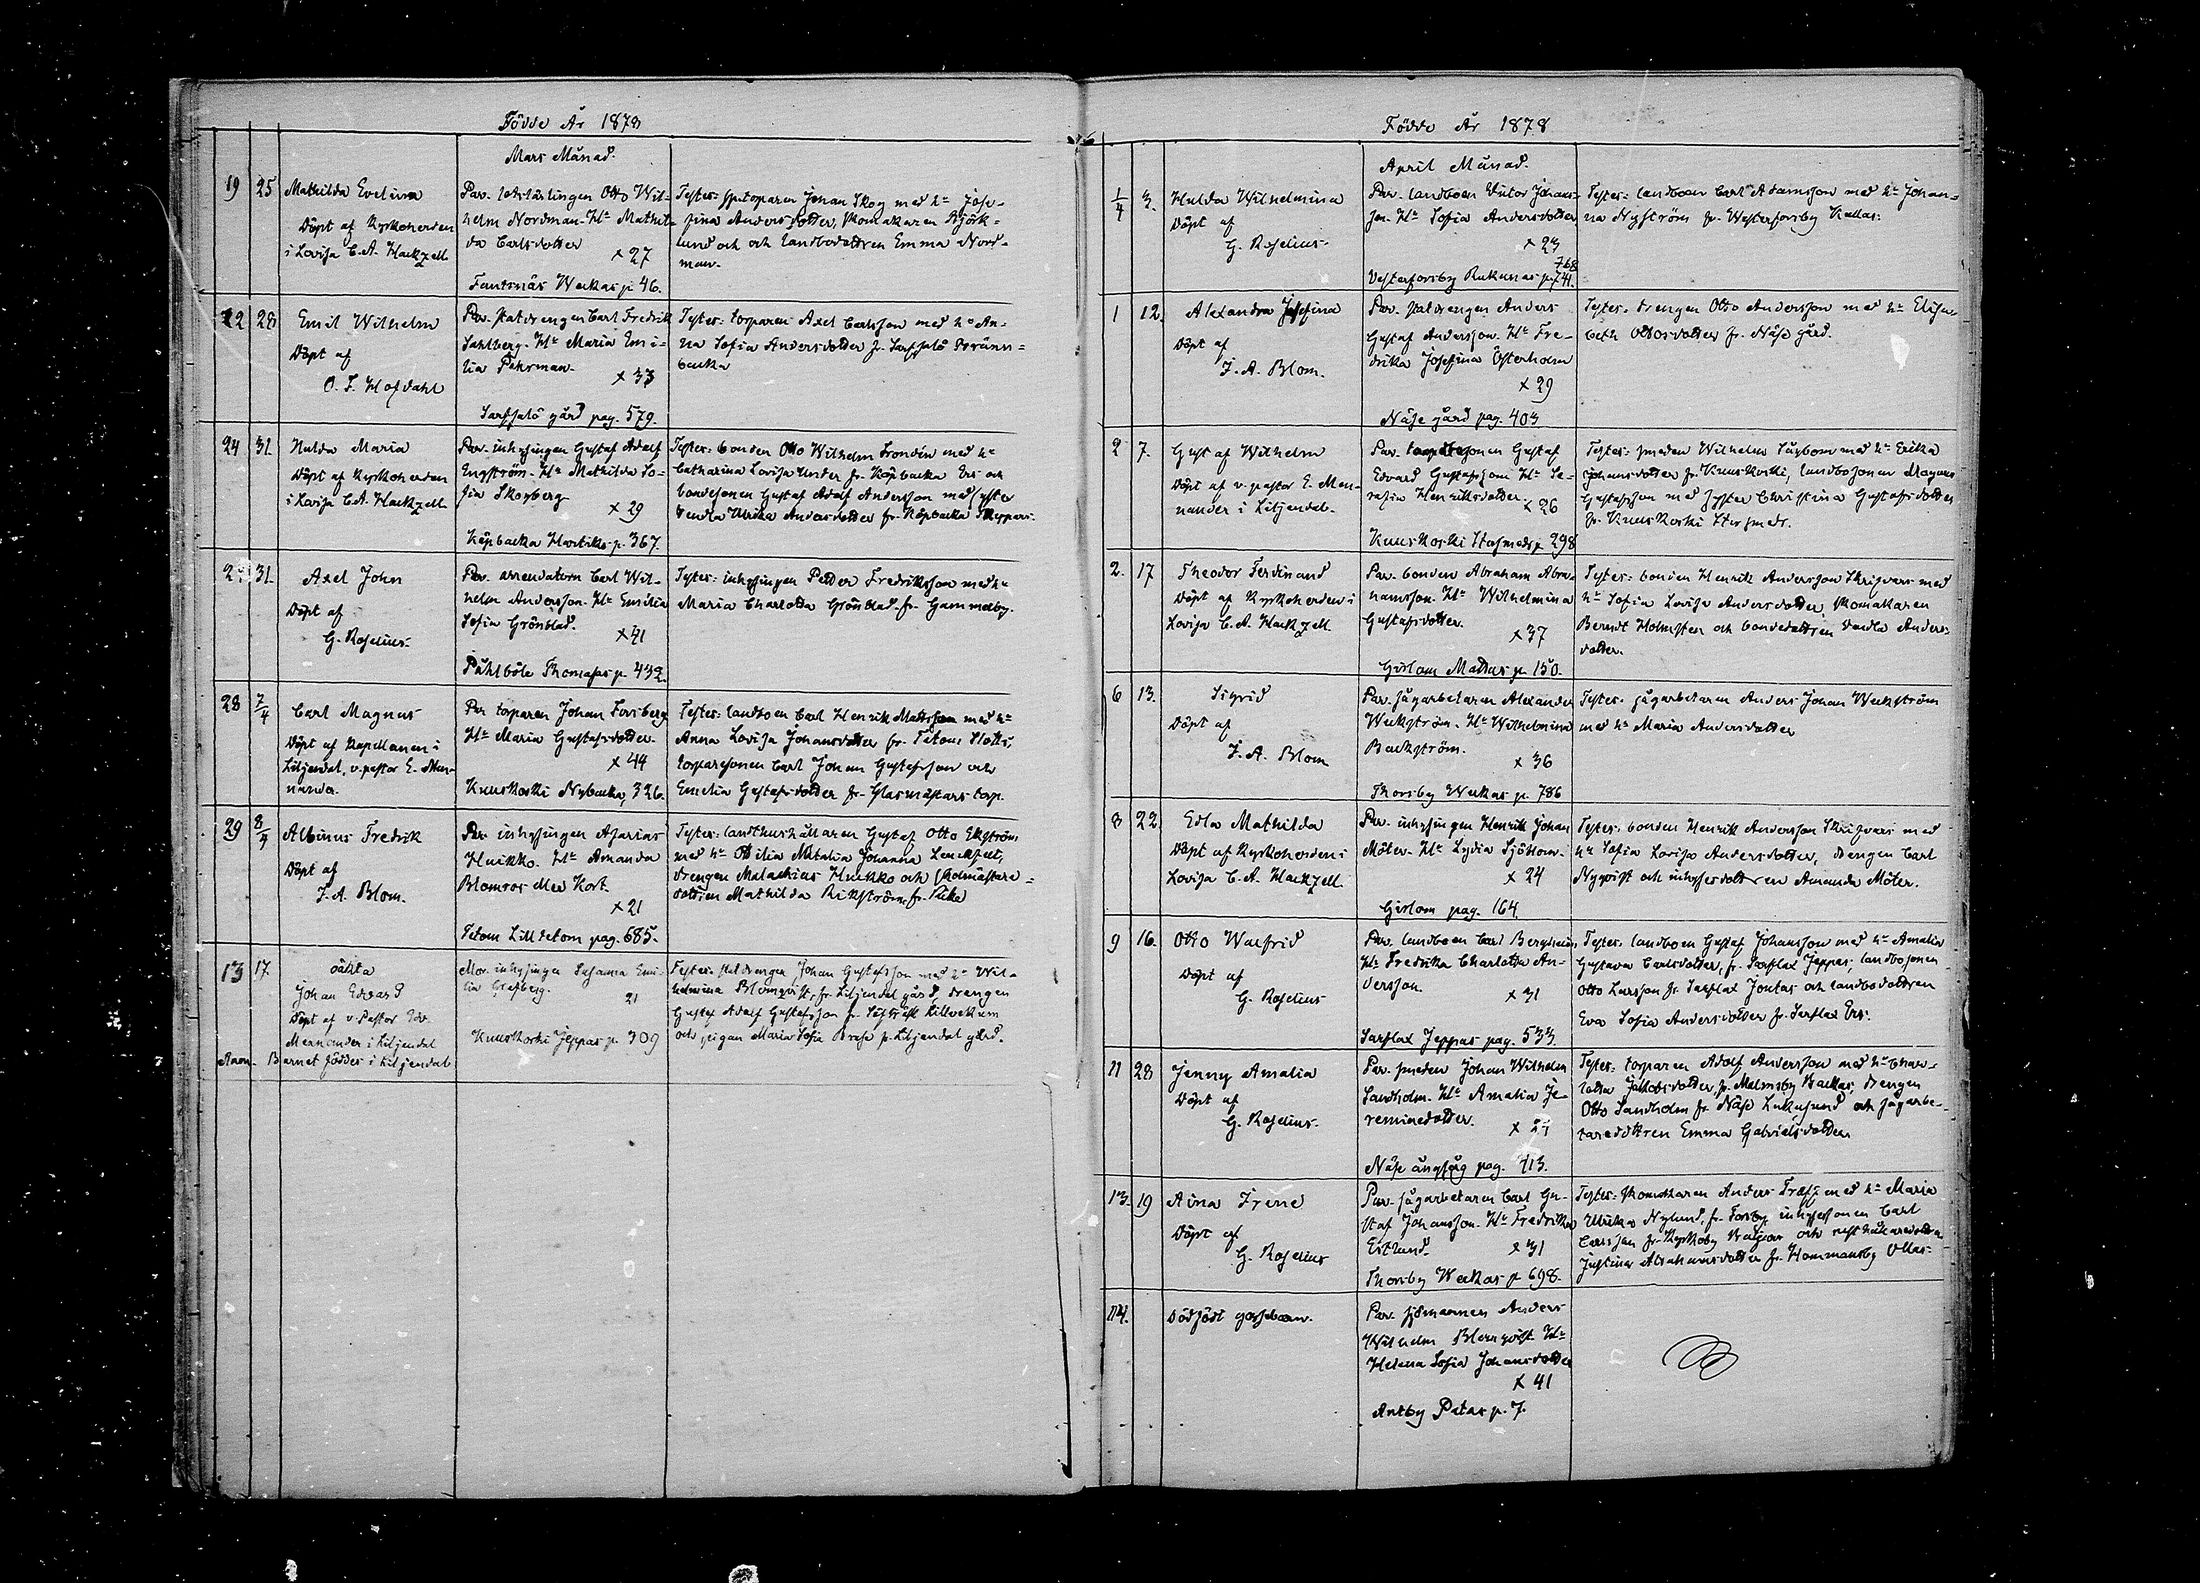 Födde År 1878
Mars Månad.
19 25 Mathilda Evelina
Döpt af Kyrkoherden
i Lovisa C. A. Hackzell
Par. lotslärlingen Otto Wil-
helm Nordman. H:u Mathil-
da Carlsdotter
x 27
Fantsnäs Weckas p. 46.
Testes: sputorparen Johan Skog med h:u Jose-
fina Andersdotter, skomakaren Björk-
lund och och landbodottren Emma Nord-
man.
22 28 Emil Wilhelm
Döpt af
O. I. Hofdahl
Par. statdrengen Carl Fredrik
Sahlberg. H:u Maria Emi-
lia Fehrman.
x 33
Sarfsalö gård pag. 579.
Testes: torparen Axel Carlsson med h:u An-
na Sofia Andersdotter fr. Sarfsalö Bränn-
backa
24 31. Hulda Maria
Döpt af Kyrkoherden
i Lovisa C. A. Hackzell
Par. inhysingen Gustaf Adolf
Engström. H:u Mathilda So-
fia Skogberg
x 29
Köpbacka Hartiko p. 367.
Testes: bonden Otto Wilhelm Frondén med h:u
Catharina Lovisa Under fr. Köpbacka Ers och
bondesonen Gustaf Adolf Andersson med syster
Vendla Ulrika Andersdotter fr. Köpbacka Skeppars.
31. Axel John
Döpt af
G. Roselius.
Par. arrendatorn Carl Wil-
helm Andersson. H:u Emilia
Sofia Grönblad.
x 41
Påhlböle Thomasas p. 432.
Testes: inhysingen Petter Fredriksson med h:u
Maria Charlotta Grönblad fr. Gammelby.
28 7/4 Carl Magnus
Döpt af Kapellanen i
Liljendal, v. pastor E. Men-
nander.
Par torparen Johan Forsberg
H:u Maria Gustafsdotter.
x 44
Kuuskoski Nybacka, 326.
Testes: landboen Carl Henrik Mattsson med h:u
Anna Lovisa Johansdotter fr. Tetom Klotts,
torparesonen Carl Johan Gustafsson och
Emelia Gustafsdotter fr. Glasmästars torp.
29 8/4 Albinus Fredrik
Döpt af
J. A. Blom.
Par inhysingen Asarias
Huikko. H:u Amanda
Blomros eller Kort.
x 21
Tetom Lilltetom pag. 685.
Testes: landthushållaren Gustaf Otto Ekström
med h:u Ottilia Natalia Johanna Lenckfelt,
drengen Malachias Huikko och skolmästare-
dottren Mathilda Rikström fr.
13 17. oäkta
Johan Edvard
Döpt af v. Pastor Edv.
Mennander i Liljendal
Anm. Barnet föddes i Liljendal
Mor. inhysingen Susanna Emi-
lia Grefberg.
21
Kuuskoski Jeppas p. 309
Testes: statdrengen Johan Gustafsson med h:u Wil-
helmina Blomqvist, fr. Liljendal gård, drengen
Gustaf Adolf Gustafsson fr.
och pigan Maria Sofia Brask fr. Liljendal gård.
Födde År 1878
April Månad.
1/4 3. Hulda Wilhelmina
Döpt af
G. Roselius.
Par. landboen Victor Johans-
son. H:u Sofia Andersdotter
x 23
768
Vesterforsby Rukunas p. 741.
Testes: landboen Carl Adamsson med h:u Johan-
na Nyström fr. Westerforsby Kallas.
1 12. Alexandra Josefina
Döpt af
J. A. Blom.
Par. statdrengen Anders
Gustaf Andersson. H:u Fre-
drika Josefina Österholm
x 29
Näse gård pag. 403
Testes: drengen Otto Andersson med h:u Elisa-
beth Ottosdotter fr. Näse gård.
2 7. Gustaf Wilhelm
Döpt af v. pastor E. Men-
nander i Liljendal.
Par. Gustaf
Edvard Gustafsson H:u Se-
rafia Henriksdotter.
x 26
Kuuskoski Hofmeds p. 298
Testes: smeden Wilhelm Sågbom med h:u Erika
Johansdotter fr. Kuuskoski, landbosonen Magnus
Gustafsson med syster Christina Gustafsdotter
fr. Kuuskoski Hofmeds.
2. 17 Theodor Ferdinand
Döpt af Kyrkoherden i
Lovisa C. A. Hackzell
Par. bonden Abraham Abra-
hamsson. H:u Wilhelmina
Gustafsdotter.
x 37
Gislom Mattas p. 150.
Testes: bonden Henrik Andersson Skrifvars med
h:u Sofia Lovisa Andersdotter, skomakaren
Berndt Holmsten och bondedottren Vendla Anders-
dotter.
6 13. Sigrid
Döpt af
J. A. Blom
Par. sågarbetaren Alexander
Weckström. H:u Wilhelmina
Backström.
x 36
Thorsby Weckas p. 786
Testes: sågarbetaren Anders Johan Weckström
med h:u Maria Andersdotter
8 22. Edla Mathilda
Döpt af Kyrkoherden i
Lovisa C. A. Hackzell.
Par. inhysingen Henrik Johan
Möter. H:u Lydia Sjöblom.
x 24
Gislom pag. 164.
Testes: bonden Henrik Andersson Skrifvars med
h:u Sofia Lovisa Andersdotter, drengen Carl
Nyqvist och inhysesdottren Amanda Möter.
9 16. Otto Walfrid
Döpt af
G. Roselius
Par. landboen Carl Bergström,
H:u Fredrika Charlotta An-
dersson.
x 31
Sarflax Jeppas pag. 533.
Testes: landboen Gustaf Johansson med h:u Amalia
Gustava Carlsdotter, fr. Sarflax Jeppas, landbosonen
Otto Larsson fr. Sarflax Jontas och landbodottren
Eva Sofia Andersdotter fr. Sarflax Ers.
11 28 Jenny Amalia
Döpt af
G. Roselius.
Par. smeden Johan Wilhelm
Sandholm. H:u Amalia Je-
remiedotter.
x 27
Näse ångsåg pag. 413.
Testes: torparen Adolf Andersson med h:u Char-
lotta Jakobsdotter, fr. Malmsby Backas, drengen
Otto Sandholm fr. Näse Lukusund och sågarbe-
taredottren Emma Gabrielsdotter
13. 19 Aina Irene
Döpt af
G. Roselius
Par. sågarbetaren Carl Gu-
staf Johansson. H:u Fredrika
Estlund.
x 31
Thorsby Weckas p. 698.
Testes: skomakaren Anders Träff med h:u Maria
Ulrika Nylund, fr. Forsby, inhysesonen Carl
Carlsson fr. Kyrkoby och rusthållaredottren
Justina Abrahamsdotter fr. Hommansby Ollas.
14. Dödfödt gossebarn.
Par. sjömannen Anders
Wilhelm Blomqvist H:u
Helena Sofia Johansdotter
x 41
Antby Patas p. 7.